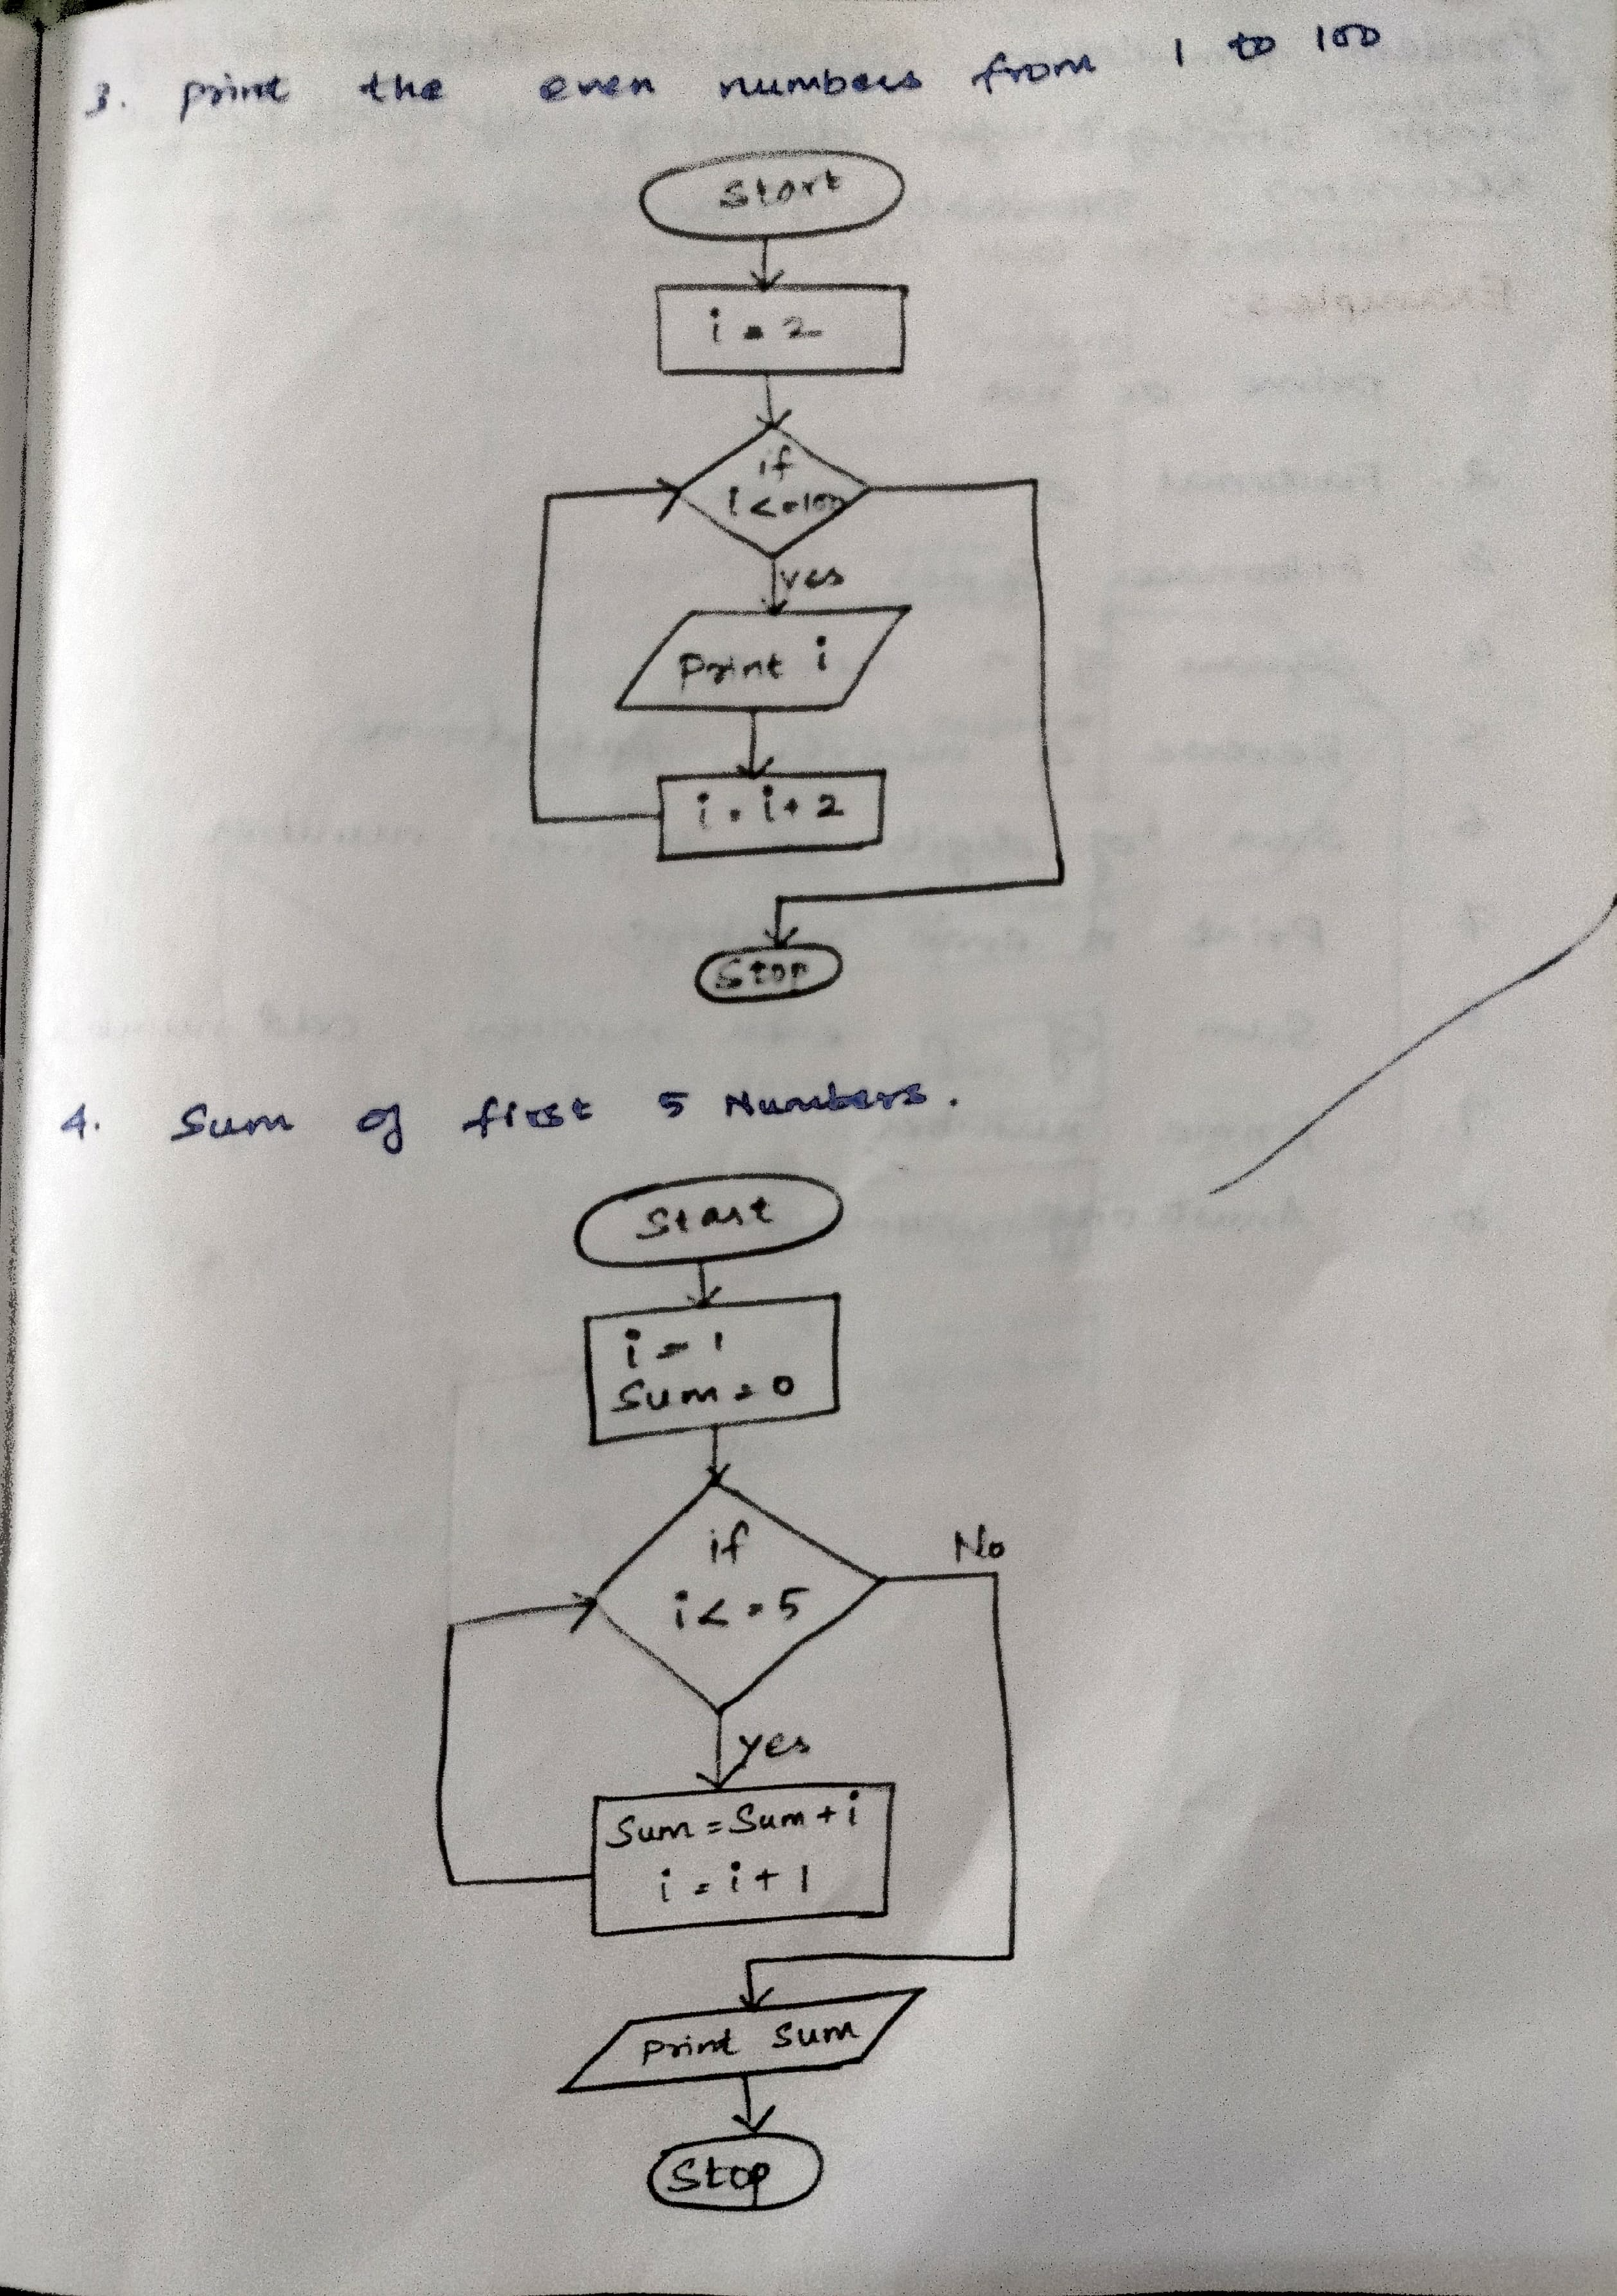 3. print the even numbers from 1 to 100
Start
i = 2
if
i <= 100
yes
Print i
i = i + 2
Stop
4. Sum of first 5 Numbers.
Start
i = 1
Sum = 0
if
i <= 5
No
yes
Sum = Sum + i
i = i + 1
Print Sum
Stop